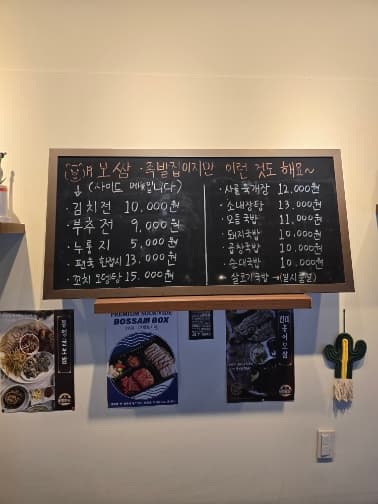 보쌈·족발집이지만 이런 것도 해요~
(사이드 메뉴입니다)
김치전 10,000원
부추전 9,000원
·누룽지 5,000원
·편육 한접시 13,000원
·꼬치 오뎅탕 15,000원
·사골육개장 12,000원
·소내장탕 13,000원
·모듬국밥 11,000원
·돼지국밥 10,000원
·곱창국밥 10,000원
·순대국밥 10,000원
살코기국밥
PREMIUM
BOSSAM BOX